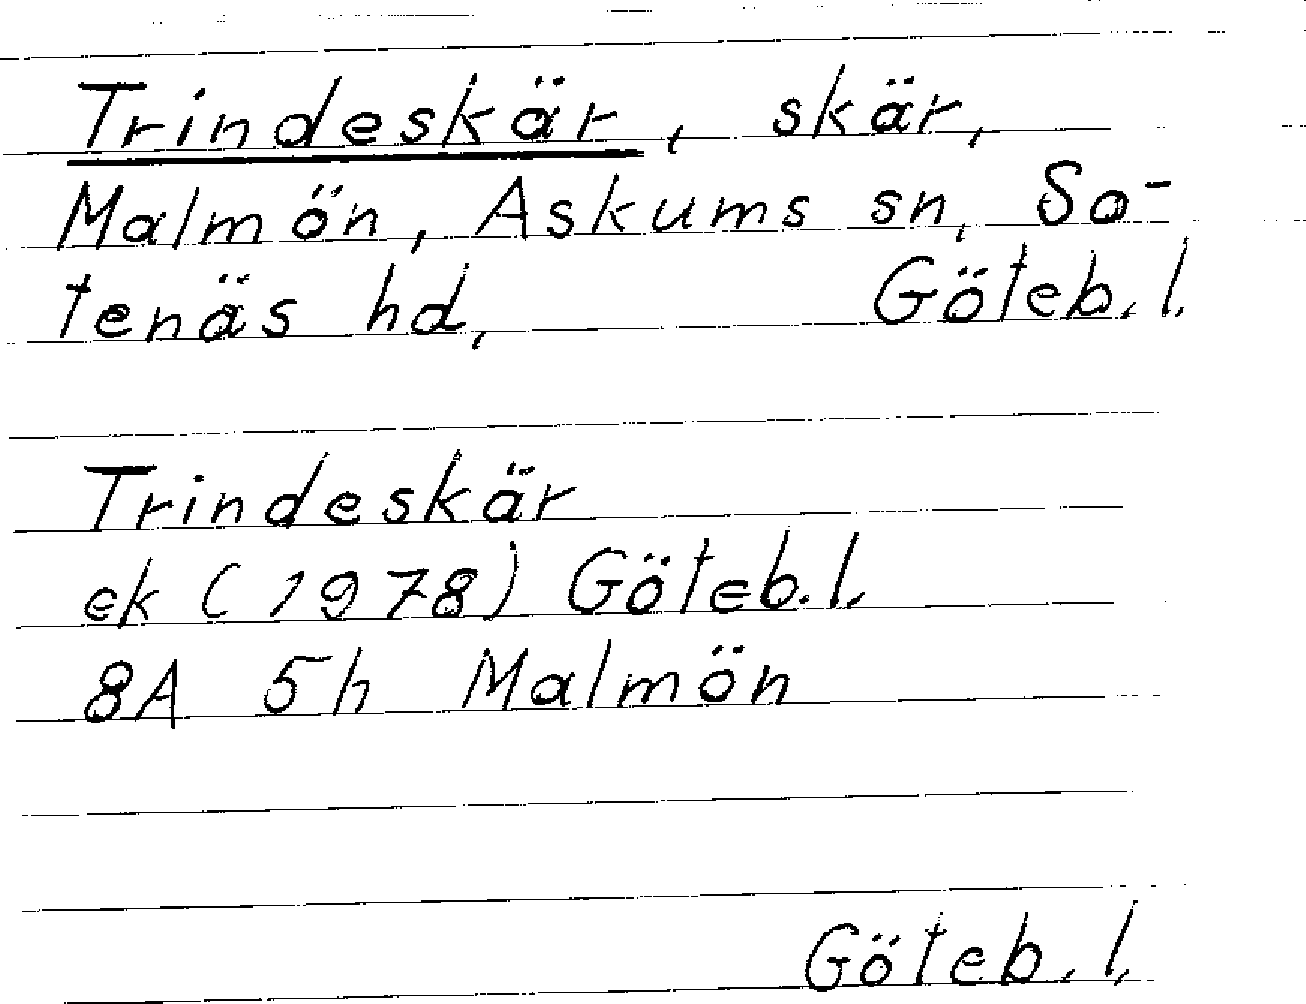 Trindeskär, skär,
Malmön, Askums sn, So-
tenäs hd, Göteb. l.
Trindeskär
ek (1978) Göteb. l.
8A 5h Malmön
Göteb. l.